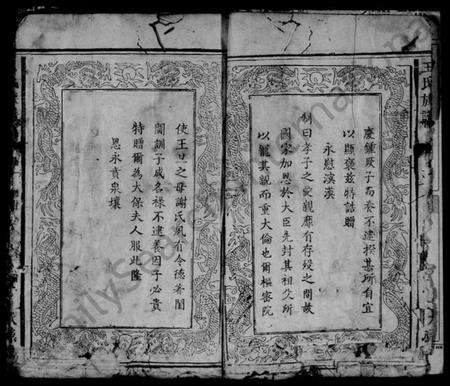 慶鍾厥子而養不逮於其所自宜
以顯褒茲特誥贈
永慰溟漠
制曰孝子之從親靡有存歿之間故
國家加恩於大臣先封其祖父所
以寵其親而重大倫也爾樞密院
使王旦之母謝氏夙有令德著聞
閫訓子成名祿不逮養因子必貴
特贈爾為大保夫人服此隆
恩永賁泉壤
王氏族譜